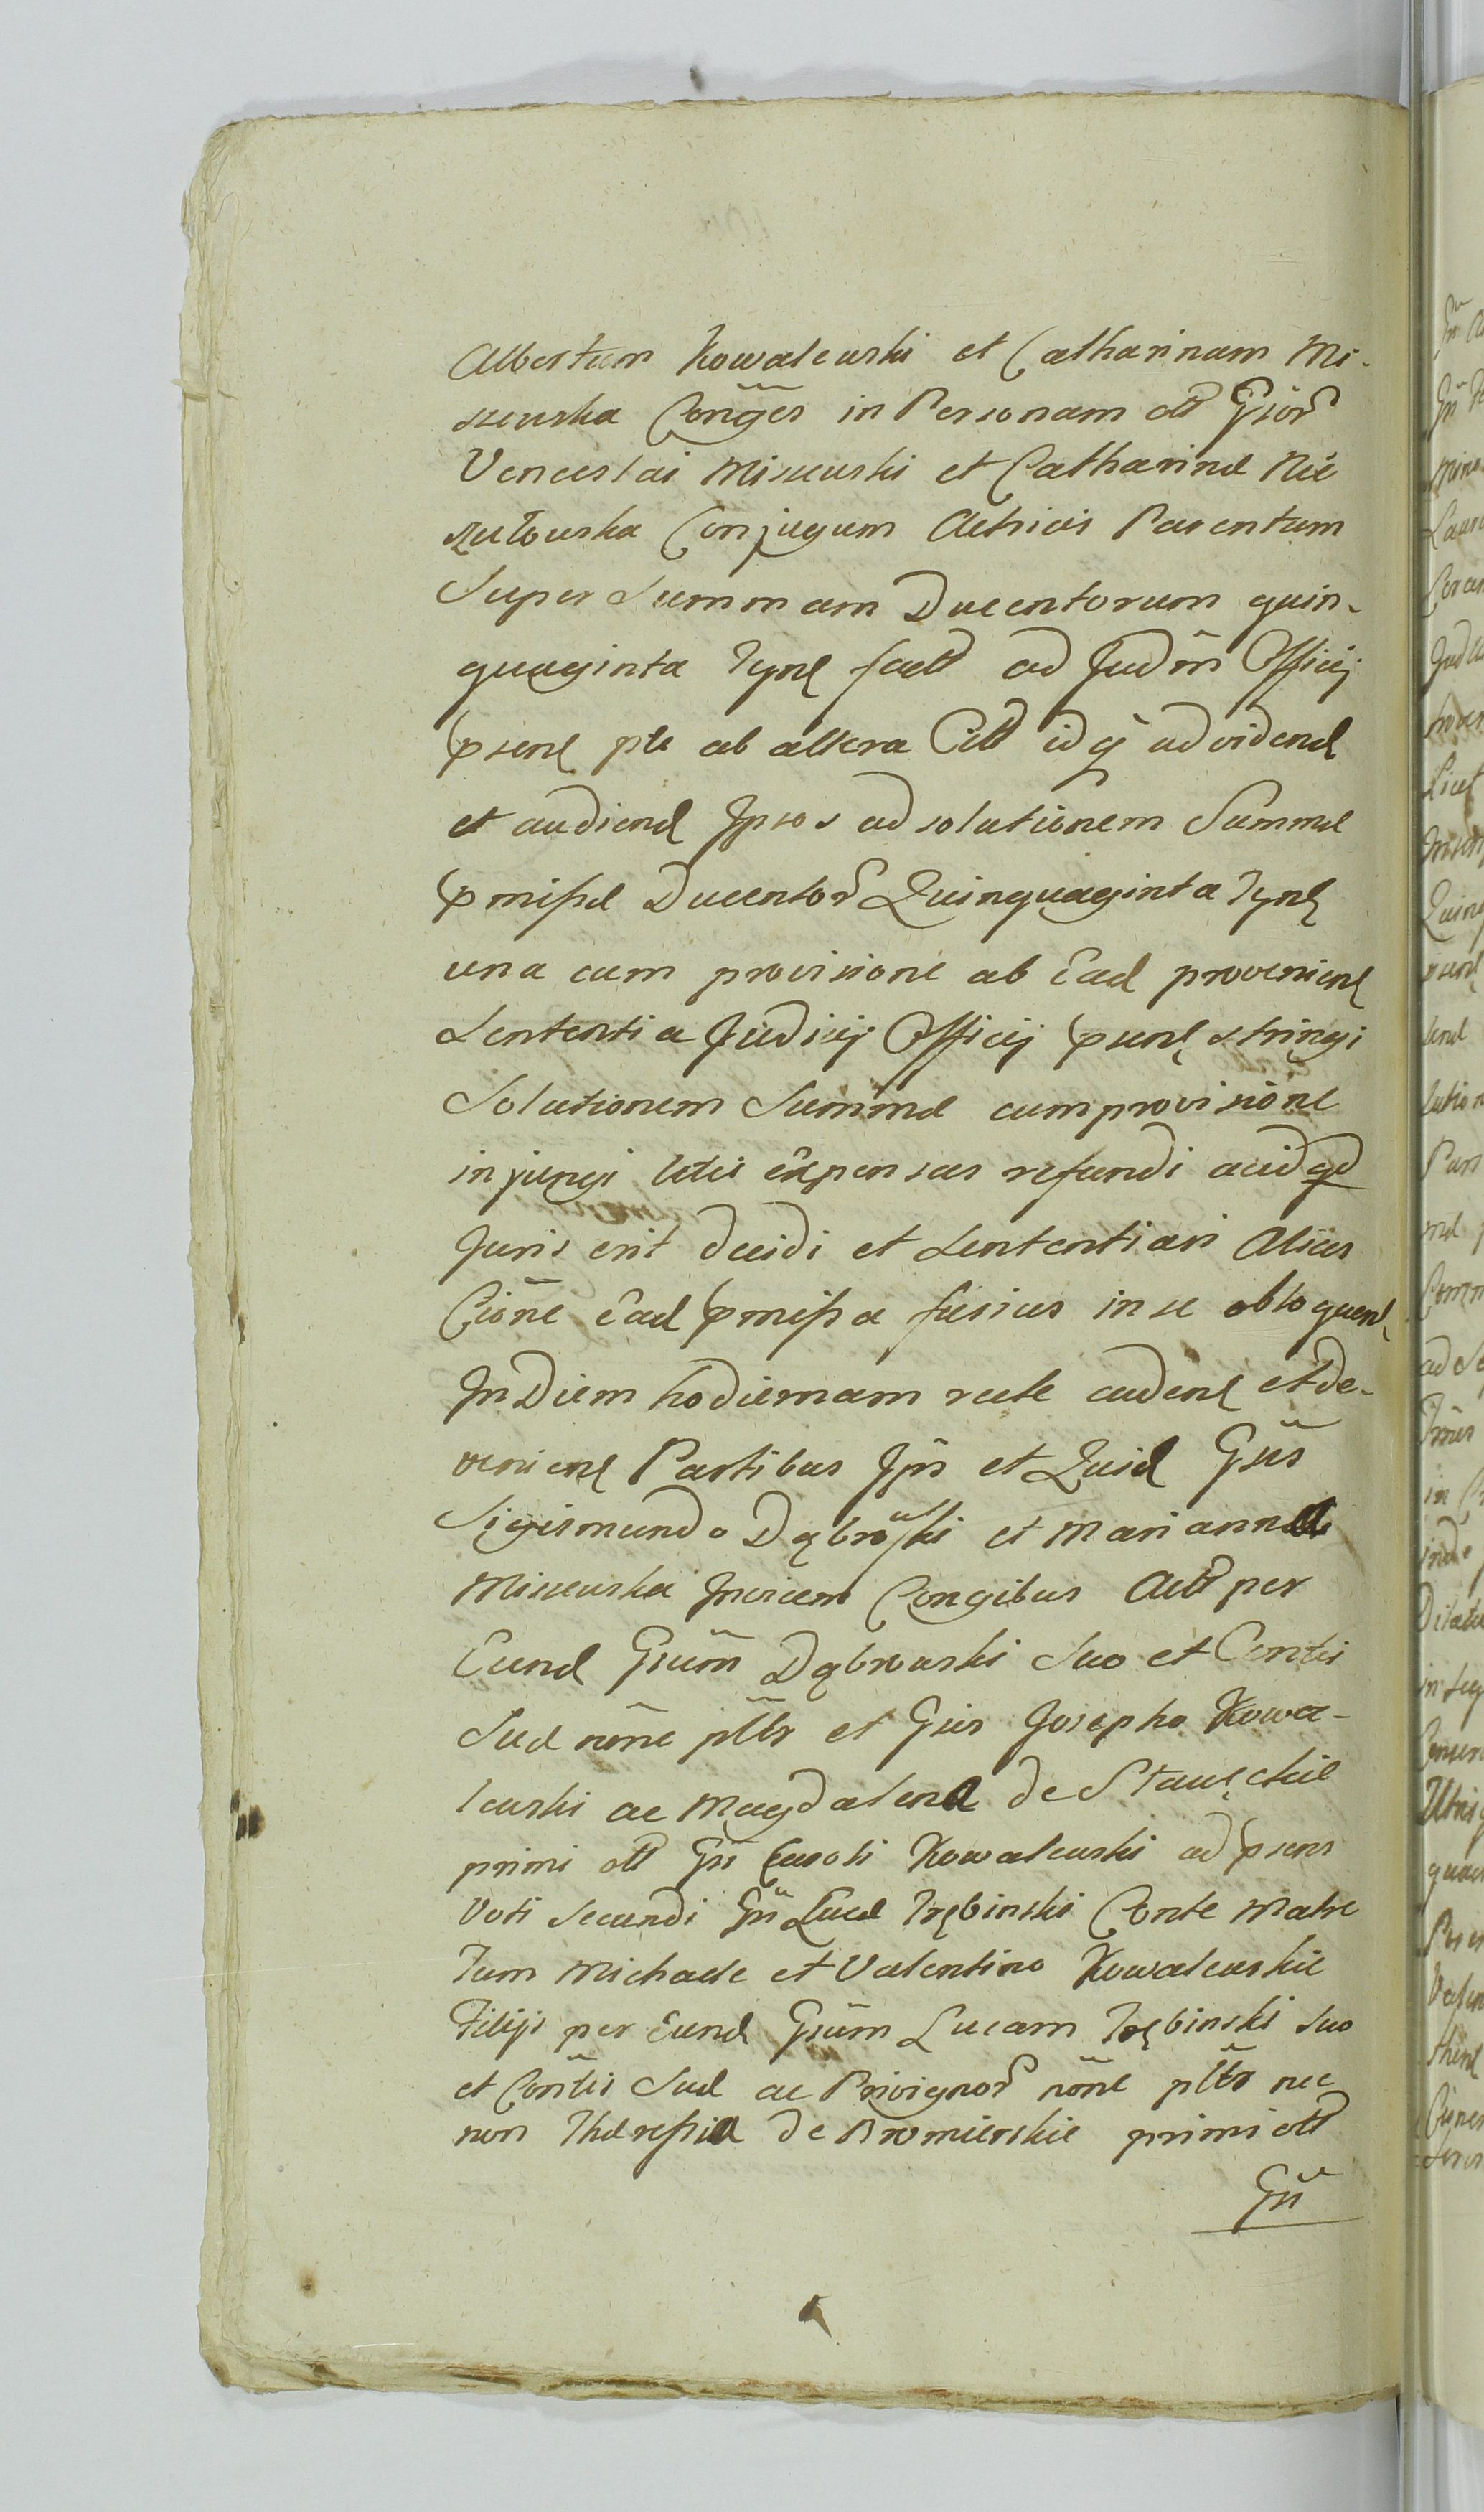 Albertum Kowalewski et Catharinam Mi-
szewska Conges in Personam olt Gsior
Venceslai Miszewski et Catharinæ Nie
szułowska Conjugum Actricis Parentum
Super Summam Ducentorum quin-
quaginta Tynf fact ad Judm Officij
psens pte ab altera Citt idq ad videnđ
et audienđ Ipsos ad solutionem Summæ
pmissæ Ducentor Quinquaginta Tynf
una cum provisione ab Eađ provenienđ
Sententia Judicij Officij psenti stringi
Solutionem Summæ cum provisione
injungi litis expensas refundi acid qd
Juris erit decidi et Sententiari Alias
Cione Eađ pmissa fusius in se obloquen
In Diem hodiernam recte cadenđ et de-
venienđ Partibus Ipis et Quiđ Gsis
Sigismundo Dąbrowski et Marianna
Miszewska Invicem Congibus Act per
Eunđ Gsum Dąbrowski Suo et Contis
Suæ nōne pltbr et Gsis Josepho Kowa-
lewski ac Magdalena de Stawęckie
primi olt Gsi Caroli Kowalewski ad psens
Voti Secundi Gsi Lucæ Trębinski Conte Matre
Tum Michaele et Valentino Kowalewskie
Filijs per Eunđ Gsum Lucam Trębinski Suo
et Contis Suæ ac Privignor nōne pltbr nec
non Theressia de Bromierskie primi olt
Gsi